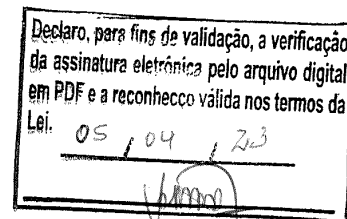 Declaro, para fins de validação, a verificação
da assinatura eletrônica pelo arquivo digital
em PDF e a reconheço válida nos termos da
Lei. 05 / 04 / 23